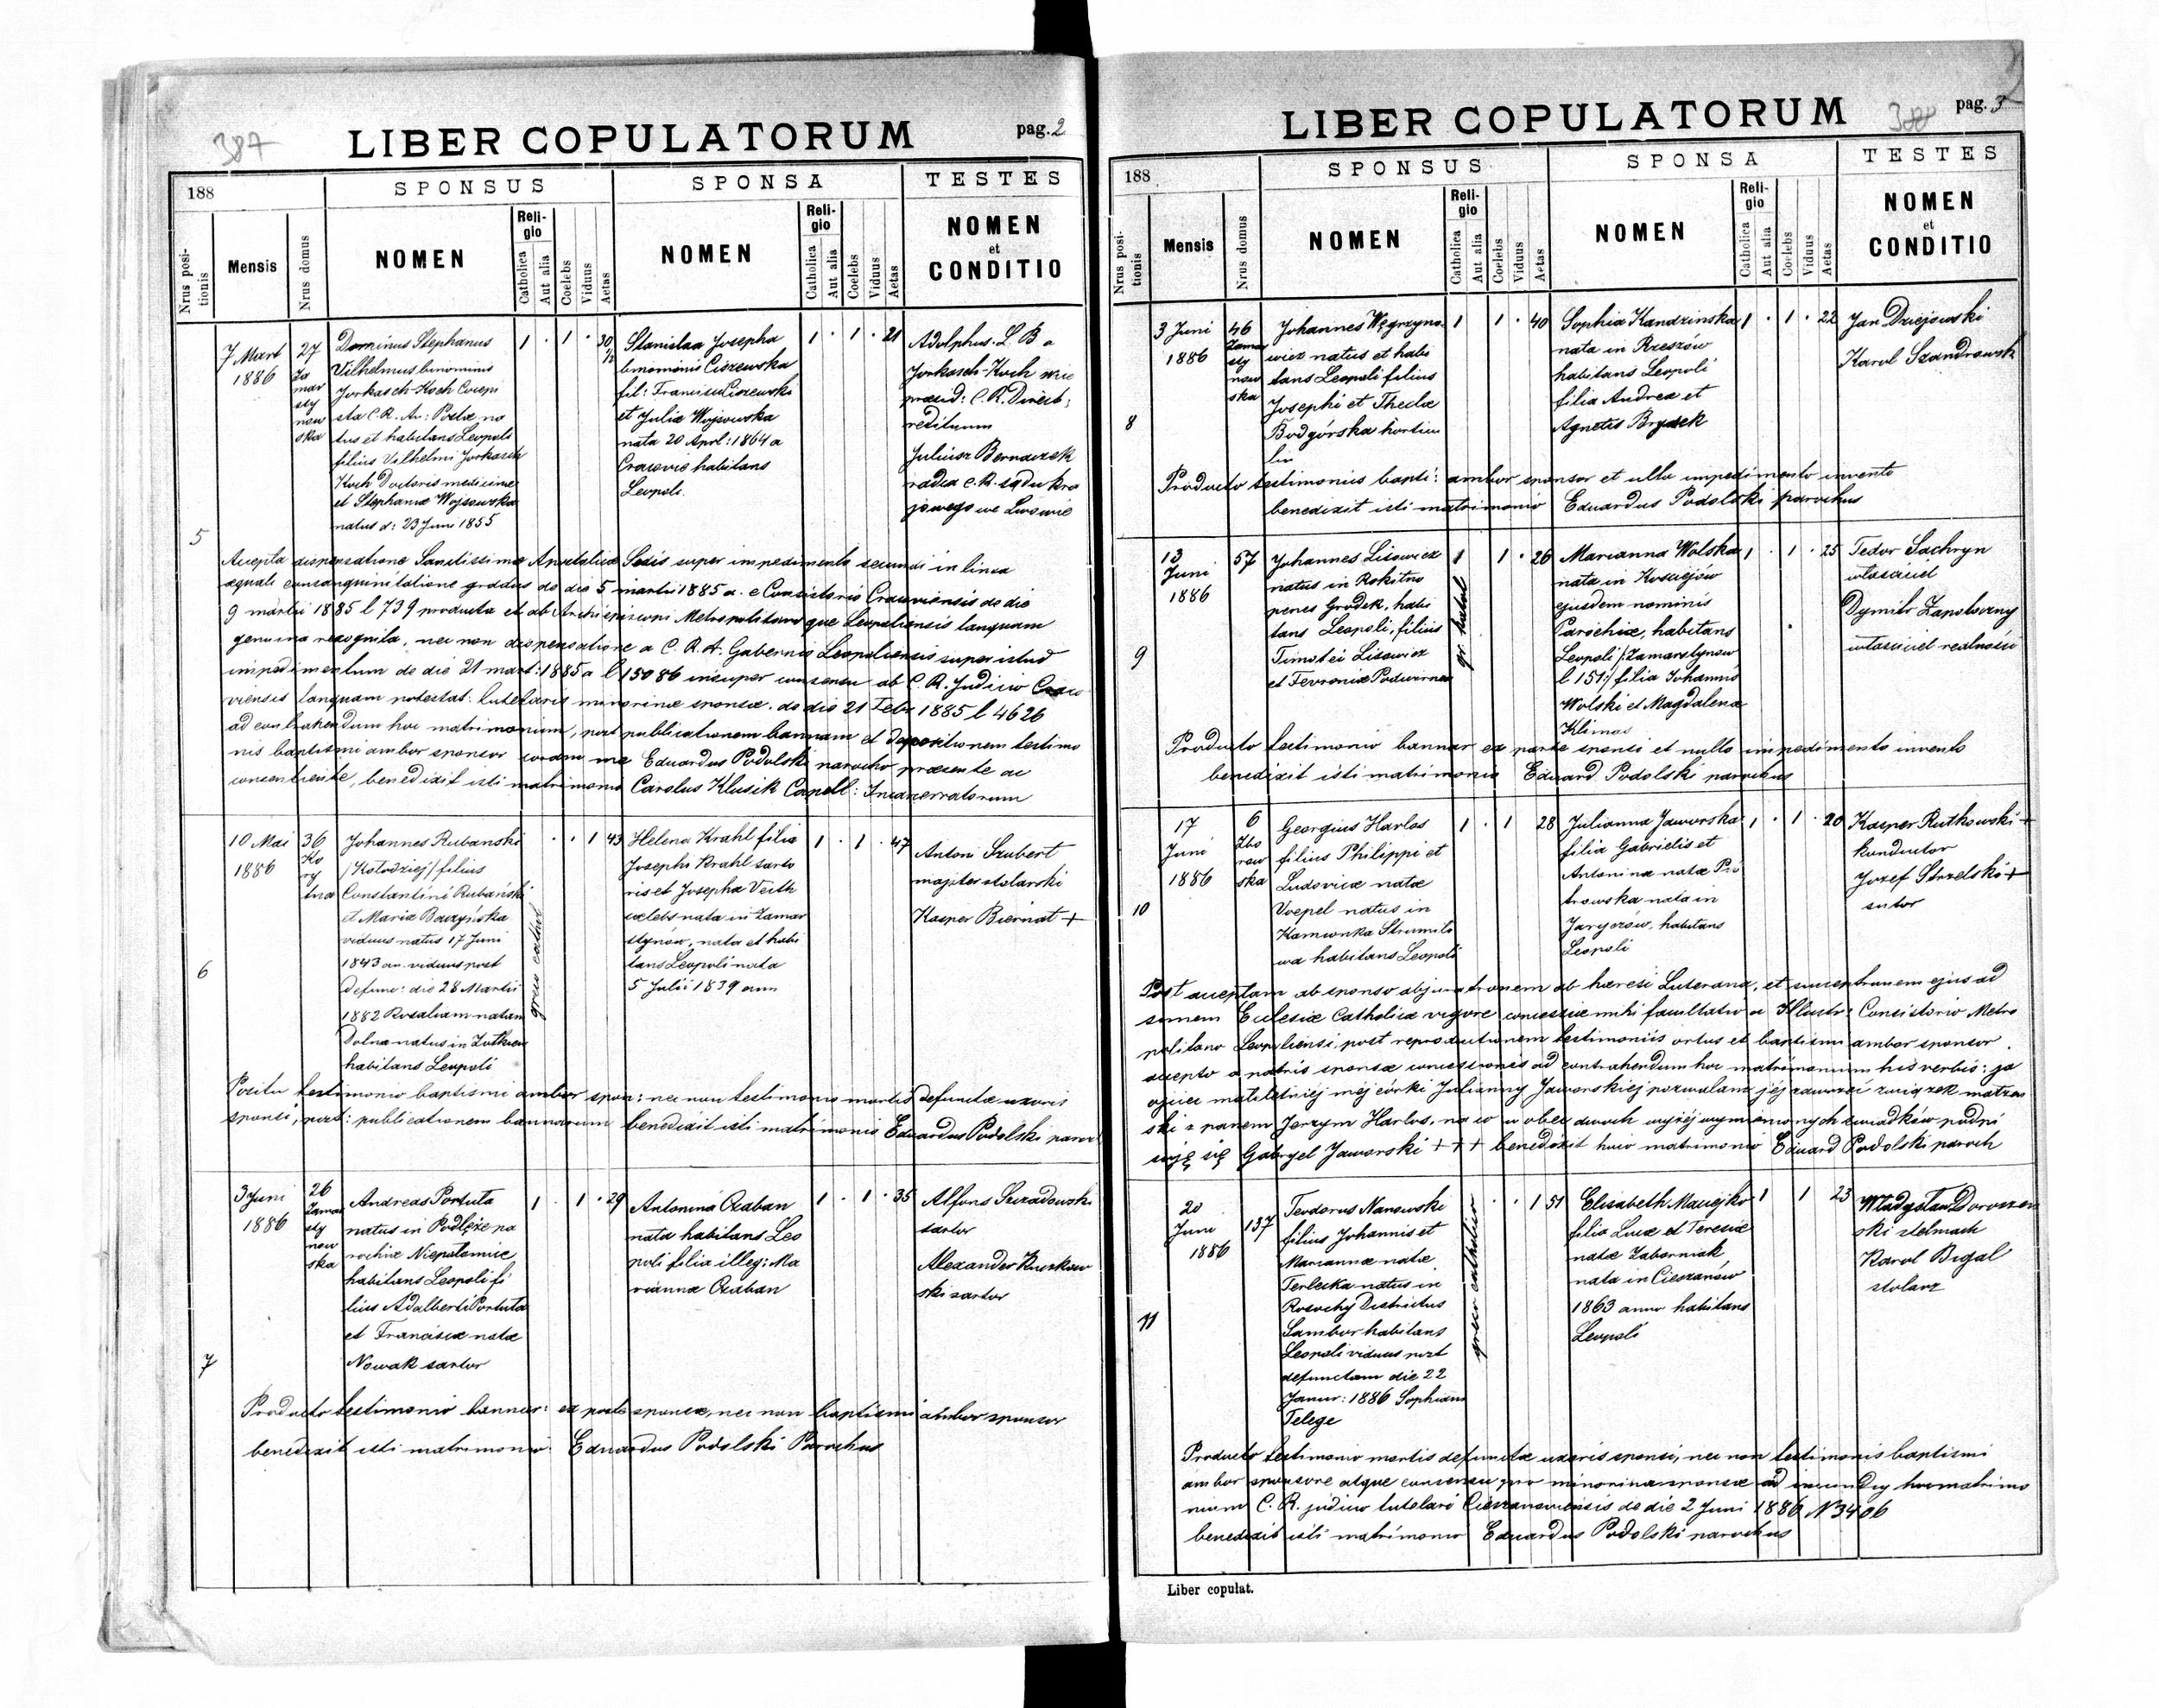 387
LIBER COPULATORUM
pag. 2
188
SPONSUS
SPONSA
TESTES
Nrus positionis
Mensis
Nrus domus
NOMEN
Religio
Catholica
Aut alia
Coelebs
Viduus
Aetas
NOMEN
Religio
Catholica
Aut alia
Coelebs
Viduus
Aetas
NOMEN
et
CONDITIO
5
7 Mart
1886
27
Za
mar
sty
now
ska
Dominus Stephanus
Vilhelmus binominis
Jorkasch-Koch
sta C. R.
tus et habitans Leopoli
filius Vilhelmi Jorkasch
Koch Doctoris medicinae
et Stephaniae Wojsowska
natus d: 23 Juni 1855
1 · 1 · 30
Stanislaa Josepha
binominis Ciszewska
fil: Francisci Ciszewski
et Julia Wojsowska
nata 20 Apri: 1864 a
Cracovie habitans
Leopoli
1 · 1 · 21
Adolphus L B a
Jorkasch-Koch
praesid: C. R. Direct:
redituum
Juliusz Bernaczek
radca c. k. sądu kra
jowego we Lwowie
Accepta dispensatione Sanctissimae Apostolicae Sedis super impedimento secundi in linea
aequali consanguinitatione gradus do die 5 martii 1885 a. e Consistorio Cracoviensis do die
9 martii 1885 l 739 producta et ab Archiepiscopi Metropolitano que Leopoliensis tanquam
genuina recognita, nec non dispensatione a C. R. A. Gabernio Leopoliensis super istud
impedimentum do die 21 mart: 1885 a l 15086 insuper consensu ab C. R. Judicio Craco
viensis tanquam potestat: tutelaris minorine sponsae. do die 21 Febr 1885 l 4626
ad contrahendum hoc matrimonium, post publicationem bannam et depositionem testimo
nis baptismi ambor sponsor coram me Eduardus Podolski parocho praesente ac
consentiente, benedixit isti matrimonio Carolus Klusik Capell: Incarcerratorum
6
10 Mai
1886
36
Ko
ry
tna
Johannes Rubanski
/Kolodziej/ filius
Constantini Rubański
et Maria Baczyńska
viduus natus 17 Juni
1843 an. viduus post
defunc: die 28 Martii
1882 Rosaliam natam
Dolna natus in Zutkiew
habitans Leopoli
greco cathol
· · 1 43
Helena Krahl filia
Josephi Krahl sarto
ris et Josepha Veith
caelebs nata in Zamar
stynów, nata et habi
tans Leopoli nata
5 Julii 1839 ann
1 · 1 · 47
Antoni Szubert
majster stolarski
Kasper Biernat +
Positu testimonio baptismi ambor spon: nec non testimonio mortis defunctae uxoris
sponsi, post: publicationem bannarum benedixit isti matrimonio Eduardus Podolski paroc
7
3 Juni
1886
26
Zamar
sty
now
ska
Andreas Portuta
natus in Podlęże pa
rochiae Niepołomice
habitans Leopoli fi
lius Adalberti Portuta
et Franciscae natae
Nowak sartor
1 · 1 · 29
Antonina Czaban
nata habitans Leo
poli filia illeg: Ma
rianna Czaban
1 · 1 · 35
Alfons Szuradowski
sartor
Alexander Kurkow
ski sartor
Producto testimonio bannar: ex parte sponsae, nec non baptismi ambor sponsor
benedixit isti matrimonio Eduardus Podolski Parochus
388
LIBER COPULATORUM
pag. 3
188
SPONSUS
SPONSA
TESTES
Nrus positionis
Mensis
Nrus domus
NOMEN
Religio
Catholica
Aut alia
Coelebs
Viduus
Aetas
NOMEN
Religio
Catholica
Aut alia
Coelebs
Viduus
Aetas
NOMEN
et
CONDITIO
8
3 Juni
1886
46
Zamar
sty
now
ska
Johannes Węgrzyno
wicz natus et habi
tans Leopoli filius
Josephi et Theclae
Bodgórska
1 1 · 40
Sophia Kandzinska
nata in Rzeszow
habitans Leopoli
filia Andrea et
Agnetis Brydek
1 · 1 · 22
Jan Dziejowski
Karol Szandrowsk
Producto testimonius bapti: ambor sponsor et ullo impedimento invento
benedixit isti matrimonio Eduardus Podolski parochus
9
13
Juni
1886
57
Johannes Lisowicz
natus in Rokitno
penes Grodek, habi
tans Leopoli, filius
Timotei Lisowicz
et Fevroniae Podwirnea
gr katol
1 1 · 26
Marianna Wolska
nata in Kosciejów
ejusdem nominis
Parochiae, habitans
Leopoli /Zamarstynow
l 151/ filia Johannis
Wolski et Magdalenae
Klimas
1 · 1 · 25
Fedor Sachryn
własciciel
Dymitr Zapotoczny
własciciel realności
Producto testimonio bannar ex parte sponsi et nullo impedimento invento
benedixit isti matrimonio Eduard Podolski parochus
10
17
Juni
1886
6
Zbo
row
ska
Georgius Harlos
filius Philippi et
Ludovicae natae
Voepel natus in
Kamionka Strumilo
wa habitans Leopoli
1 · 1 28
Julianna Jaworska
filia Gabrielis et
Antonina natae Pio
trowska nata in
Jaryczów, habitans
Leopoli
1 · 1 · 20
Kasper Rutkowski +
konductor
Jozef Strzelski +
sutor
Post acceptam ab sponso abjurationem ab haeresi Luterana, et susceptionem ejus ad
sinum Ecclesiae Catholicae vigore concessae mihi facultatio a Illustr: Consistorio Metro
politano Leopoliensi, post reproductionem testimoniis ortus et baptismi ambor sponsor.
accepto a patris sponsae concessionis ad contrahendum hoc matrimonium his verbis: ja
ojciec małoletniéj méj córki Julianny Jaworskiej pozwalam jéj zawrzeć związek małżeń
ski z panem Jerzym Harlos, na co w obec dwoch wyżéj wymienionych swiadków podpi
suję się Gabryel Jaworski +++ benedixit huic matrimonio Eduard Podolski paroch
11
20
Juni
1886
137
Teodorus Nanowski
filius Johannis et
Mariannae natae
Terlecka natus in
Rosochy Districtus
Sambor habitans
Leopoli viduus post
defunctam die 22
Januar: 1886 Sophiam
Telege
greco catholico
· · 1 51
Elisabeth Maciejko
filia Lucae et Teresiae
natae Zaborniak
nata in Cieszanów
1863 anno habitans
Leopoli
1 1 23
Władysław Doroszen
ski stelmach
Karol Bigal
stolarz
Producto testimonio mortis defunctae uxoris sponsi, nec non testimonis baptismi
ambor sponsore atque consensu pro minorina sponsae ad hoc matrimo
nium C. R. judicio tutelari Cieszanoviensis do die 2 Juni 1886 N 3406
benedixit isti matrimonio Eduardus Podolski parochus
Liber copulat.